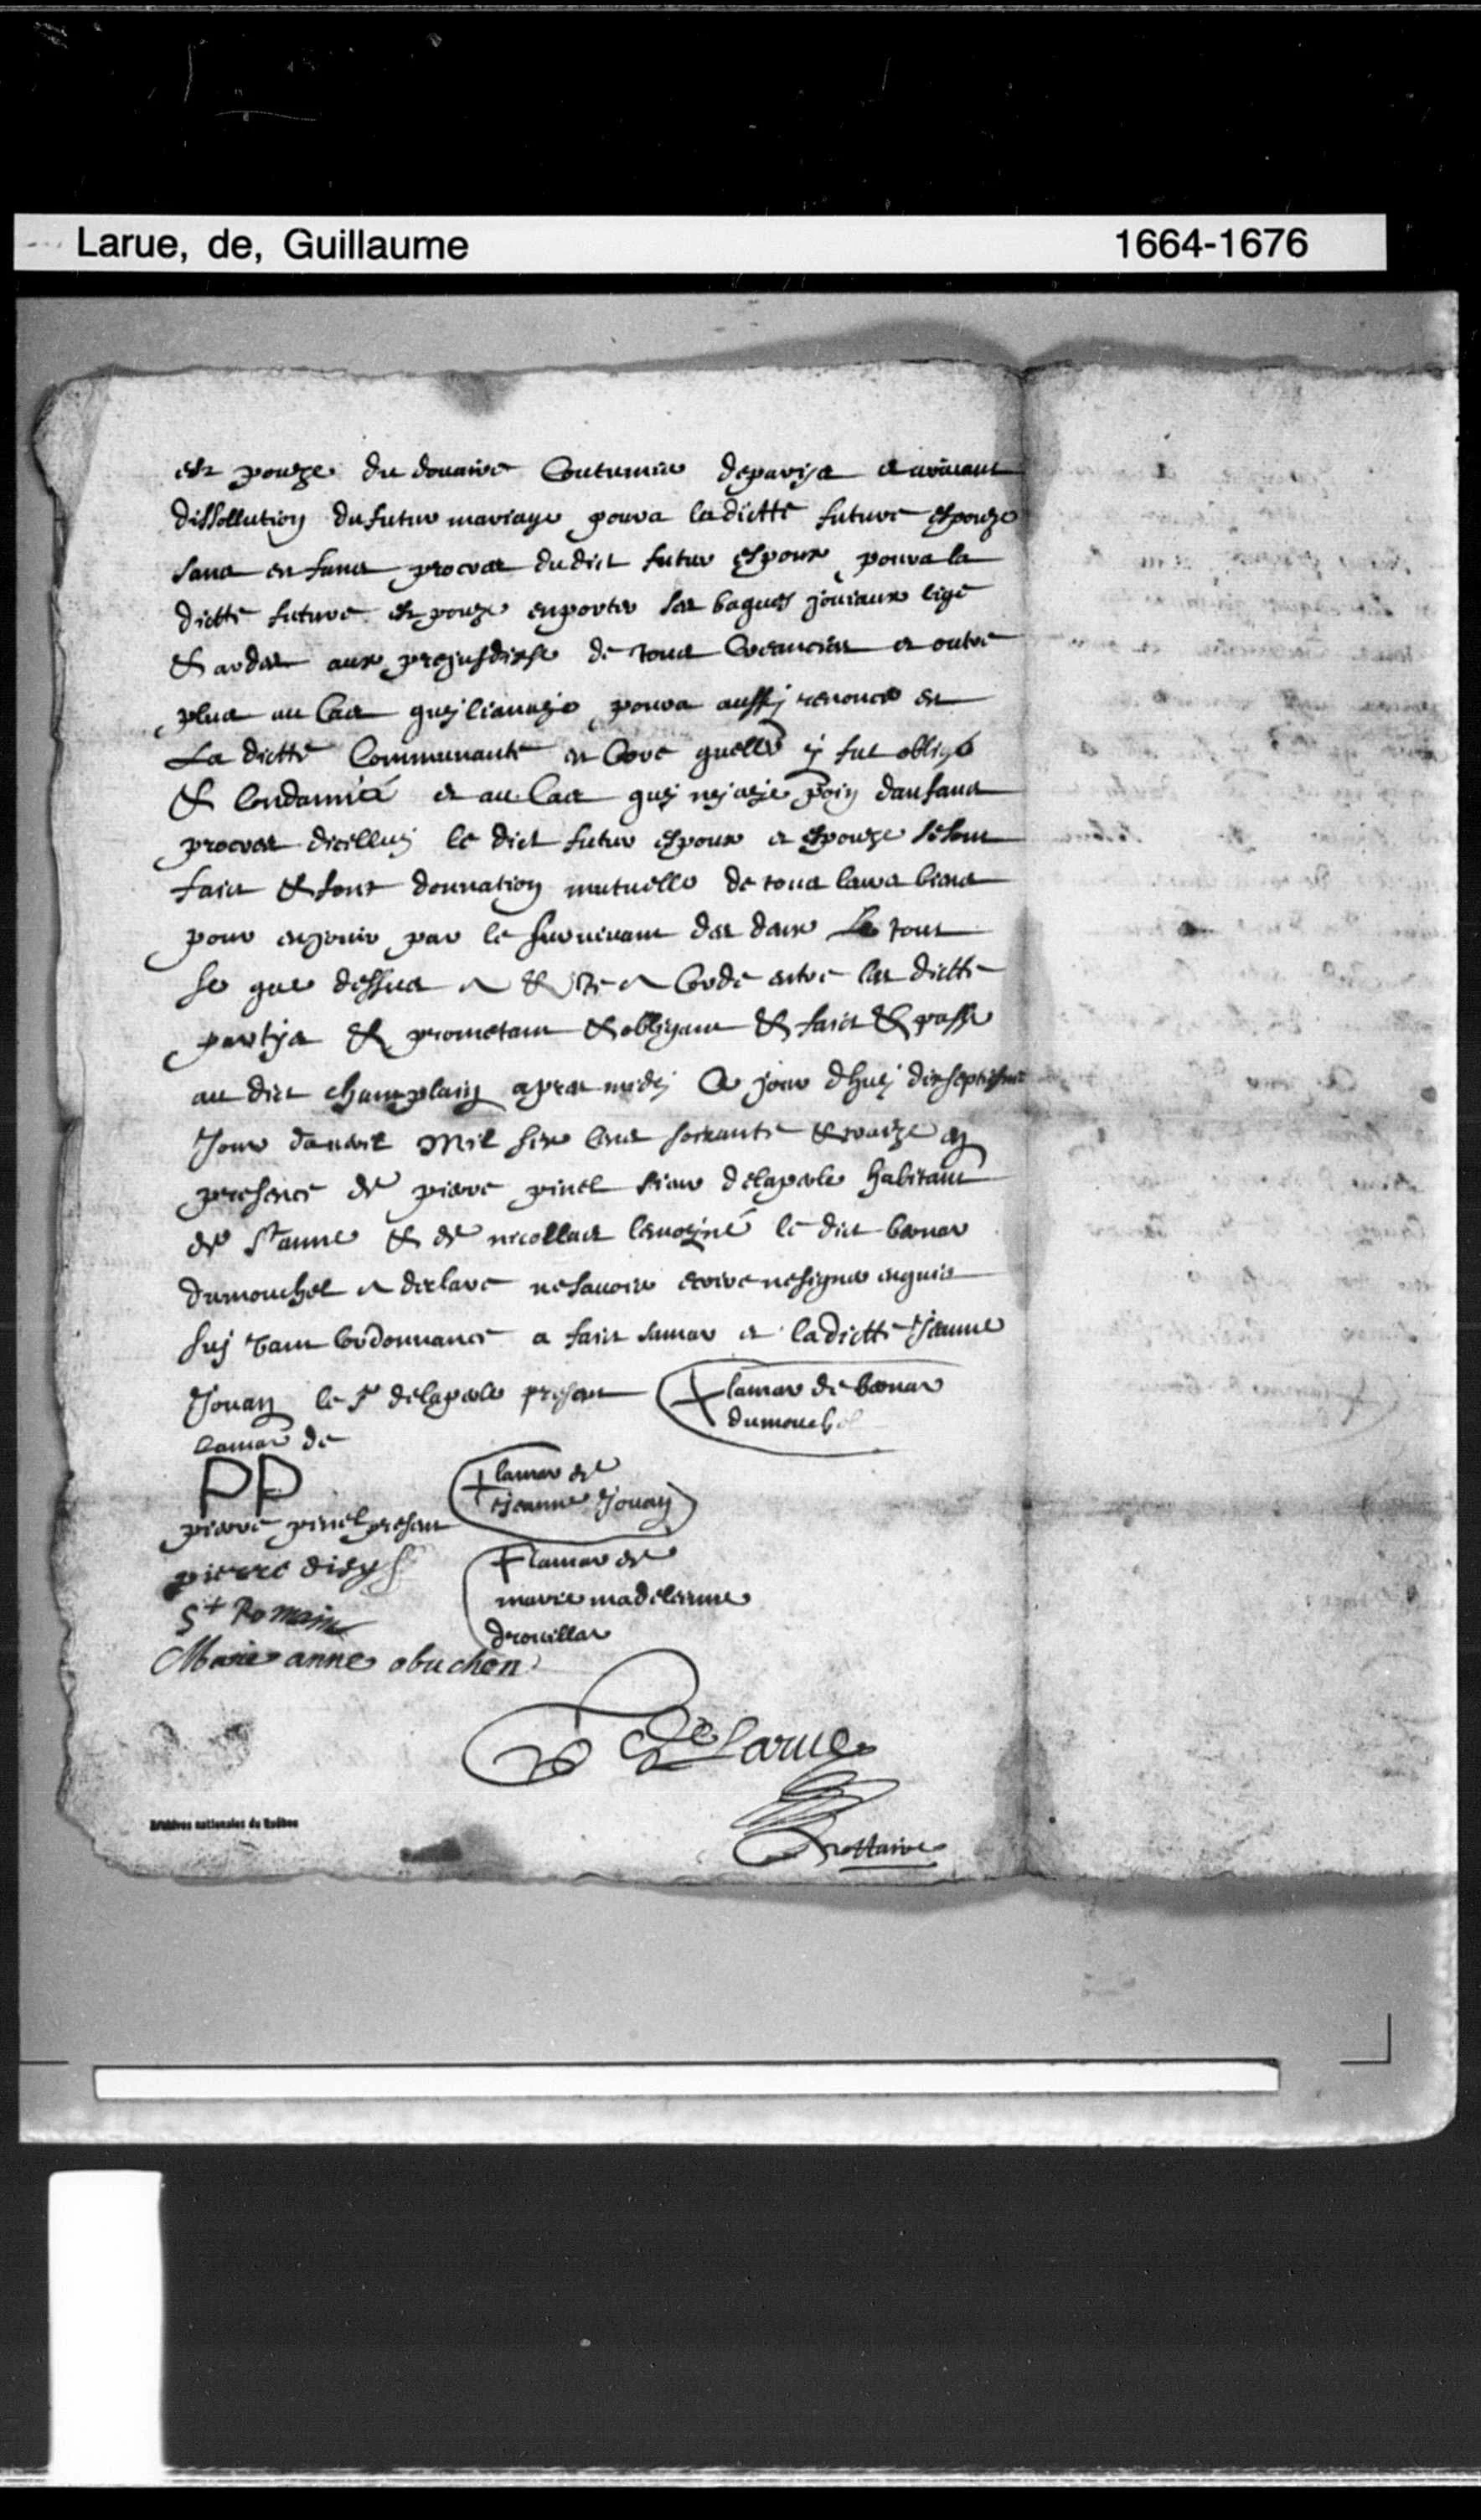 Larue, de, Guillaume 1664-1676
es pouze du douaire Coutumier deparis et arivant
dissollution dufutur mariage poura ladicitte future espouze
sans enfans procrees dudict futur espoux poura la
dictte future espouze enporter ses bagues joüiaux lige
& ardes aux prejusdisse de tous Creanciers et outre
plus au Cas quy poura aussy renoncer en
La dictte Communauté en Core quelle y fut oblige
& Condamnée et au Cas quy nj aye poin danfans
procrees dicelluy le dict futur espoux et espouze se sont
faict & font donnation mutuelle de tous leurs biens
pour enjouir par le survivant des deux le tout
se que dessus a esté a Cordé entre les dictte
partys & prometant & obligant & faict & passe
au dict champlain apres midy Ce jour dhuy dixseptiesme
Jour davril Mil six cens soixante & treize en
presence de pierre pinel sieur delaperle habitant
de St anne & de nicollas lemoyne le dict bernar
dumouchel a declare nesavoir ecrire nesigner enquis
suj vant Lordonnance a faict samar et ladictte Jeanne
Jouan le Sr delaperle presant lamar de bernar
dumouchel
lamar de
PP
pierre pinel presant
lamar de
Jeanne Jouan
pierre disy
lamar de
marie madelenne
drouillar
St Romain
Marie anne obuchon
De Larue
Nottaire
Archives nationales du Québec